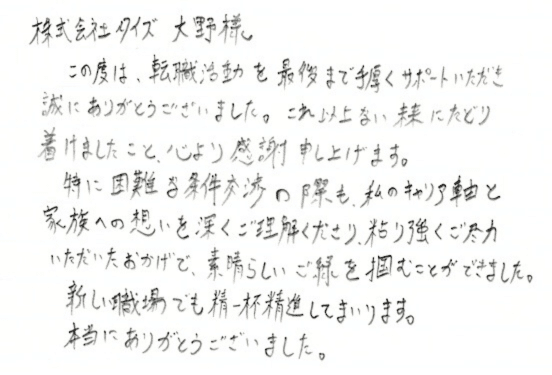 株式会社タイズ 大野様
この度は、転職活動を最後まで手厚くサポートいただき
誠にありがとうございました。これ以上ない未来にたどり
着けましたこと、心より感謝申し上げます。
特に困難な条件交渉の際も、私のキャリア軸と
家族への想いを深くご理解くださり、粘り強くご尽力
いただいたおかげで、素晴らしいご縁を掴むことができました。
新しい職場でも精一杯精進してまいります。
本当にありがとうございました。